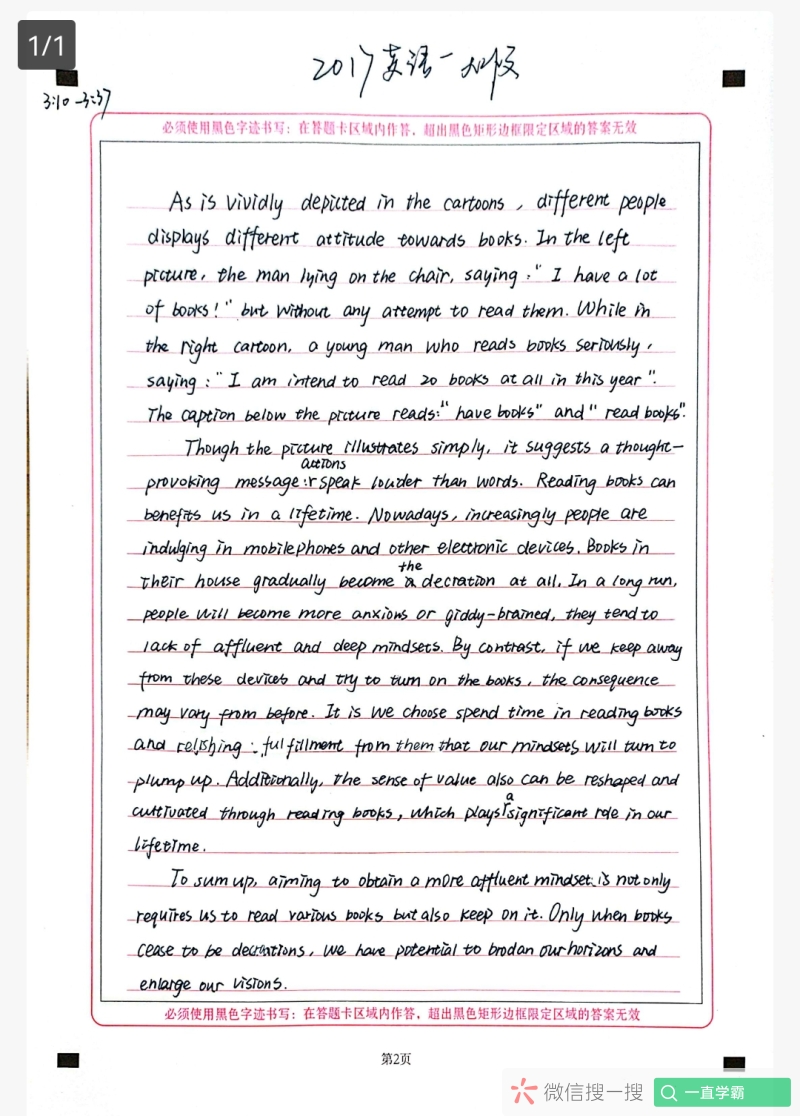 1/1
2017英语一大作文
3:10-3:37
必须使用黑色字迹书写：在答题卡区域内作答，超出黑色矩形边框限定区域的答案无效
As is vividly depicted in the cartoons, different people
displays different attitude towards books. In the left
picture, the man lying on the chair, saying:" I have a lot
of books!" but without any attempt to read them. While in
the right cartoon, a young man who reads books seriously,
saying:"I am intend to read 20 books at all in this year".
The caption below the picture reads:"have books" and "read books".
Though the picture illustrates simply, it suggests a thought-
provoking message: actions speak louder than words. Reading books can
benefits us in a lifetime. Nowadays, increasingly people are
indulging in mobilephones and other electronic devices. Books in
their house gradually become the decration at all. In a long run,
people will become more anxions or giddy-brained, they tend to
lack of affluent and deep mindsets. By contrast, if we keep away
from these devices and try to turn on the books, the consequence
may vary from before. It is we choose spend time in reading books
and relishing fulfillment from them that our mindsets will turn to
plump up. Additionally, the sense of value also can be reshaped and
cultivated through reading books, which plays a significant role in our
lifetime.
To sum up, aiming to obtain a more affluent mindset is not only
requires us to read various books but also keep on it. Only when books
cease to be decrations, we have potential to brodan our horizons and
enlarge our visions.
必须使用黑色字迹书写：在答题卡区域内作答，超出黑色矩形边框限定区域的答案无效
第2页
微信搜一搜
一直学霸